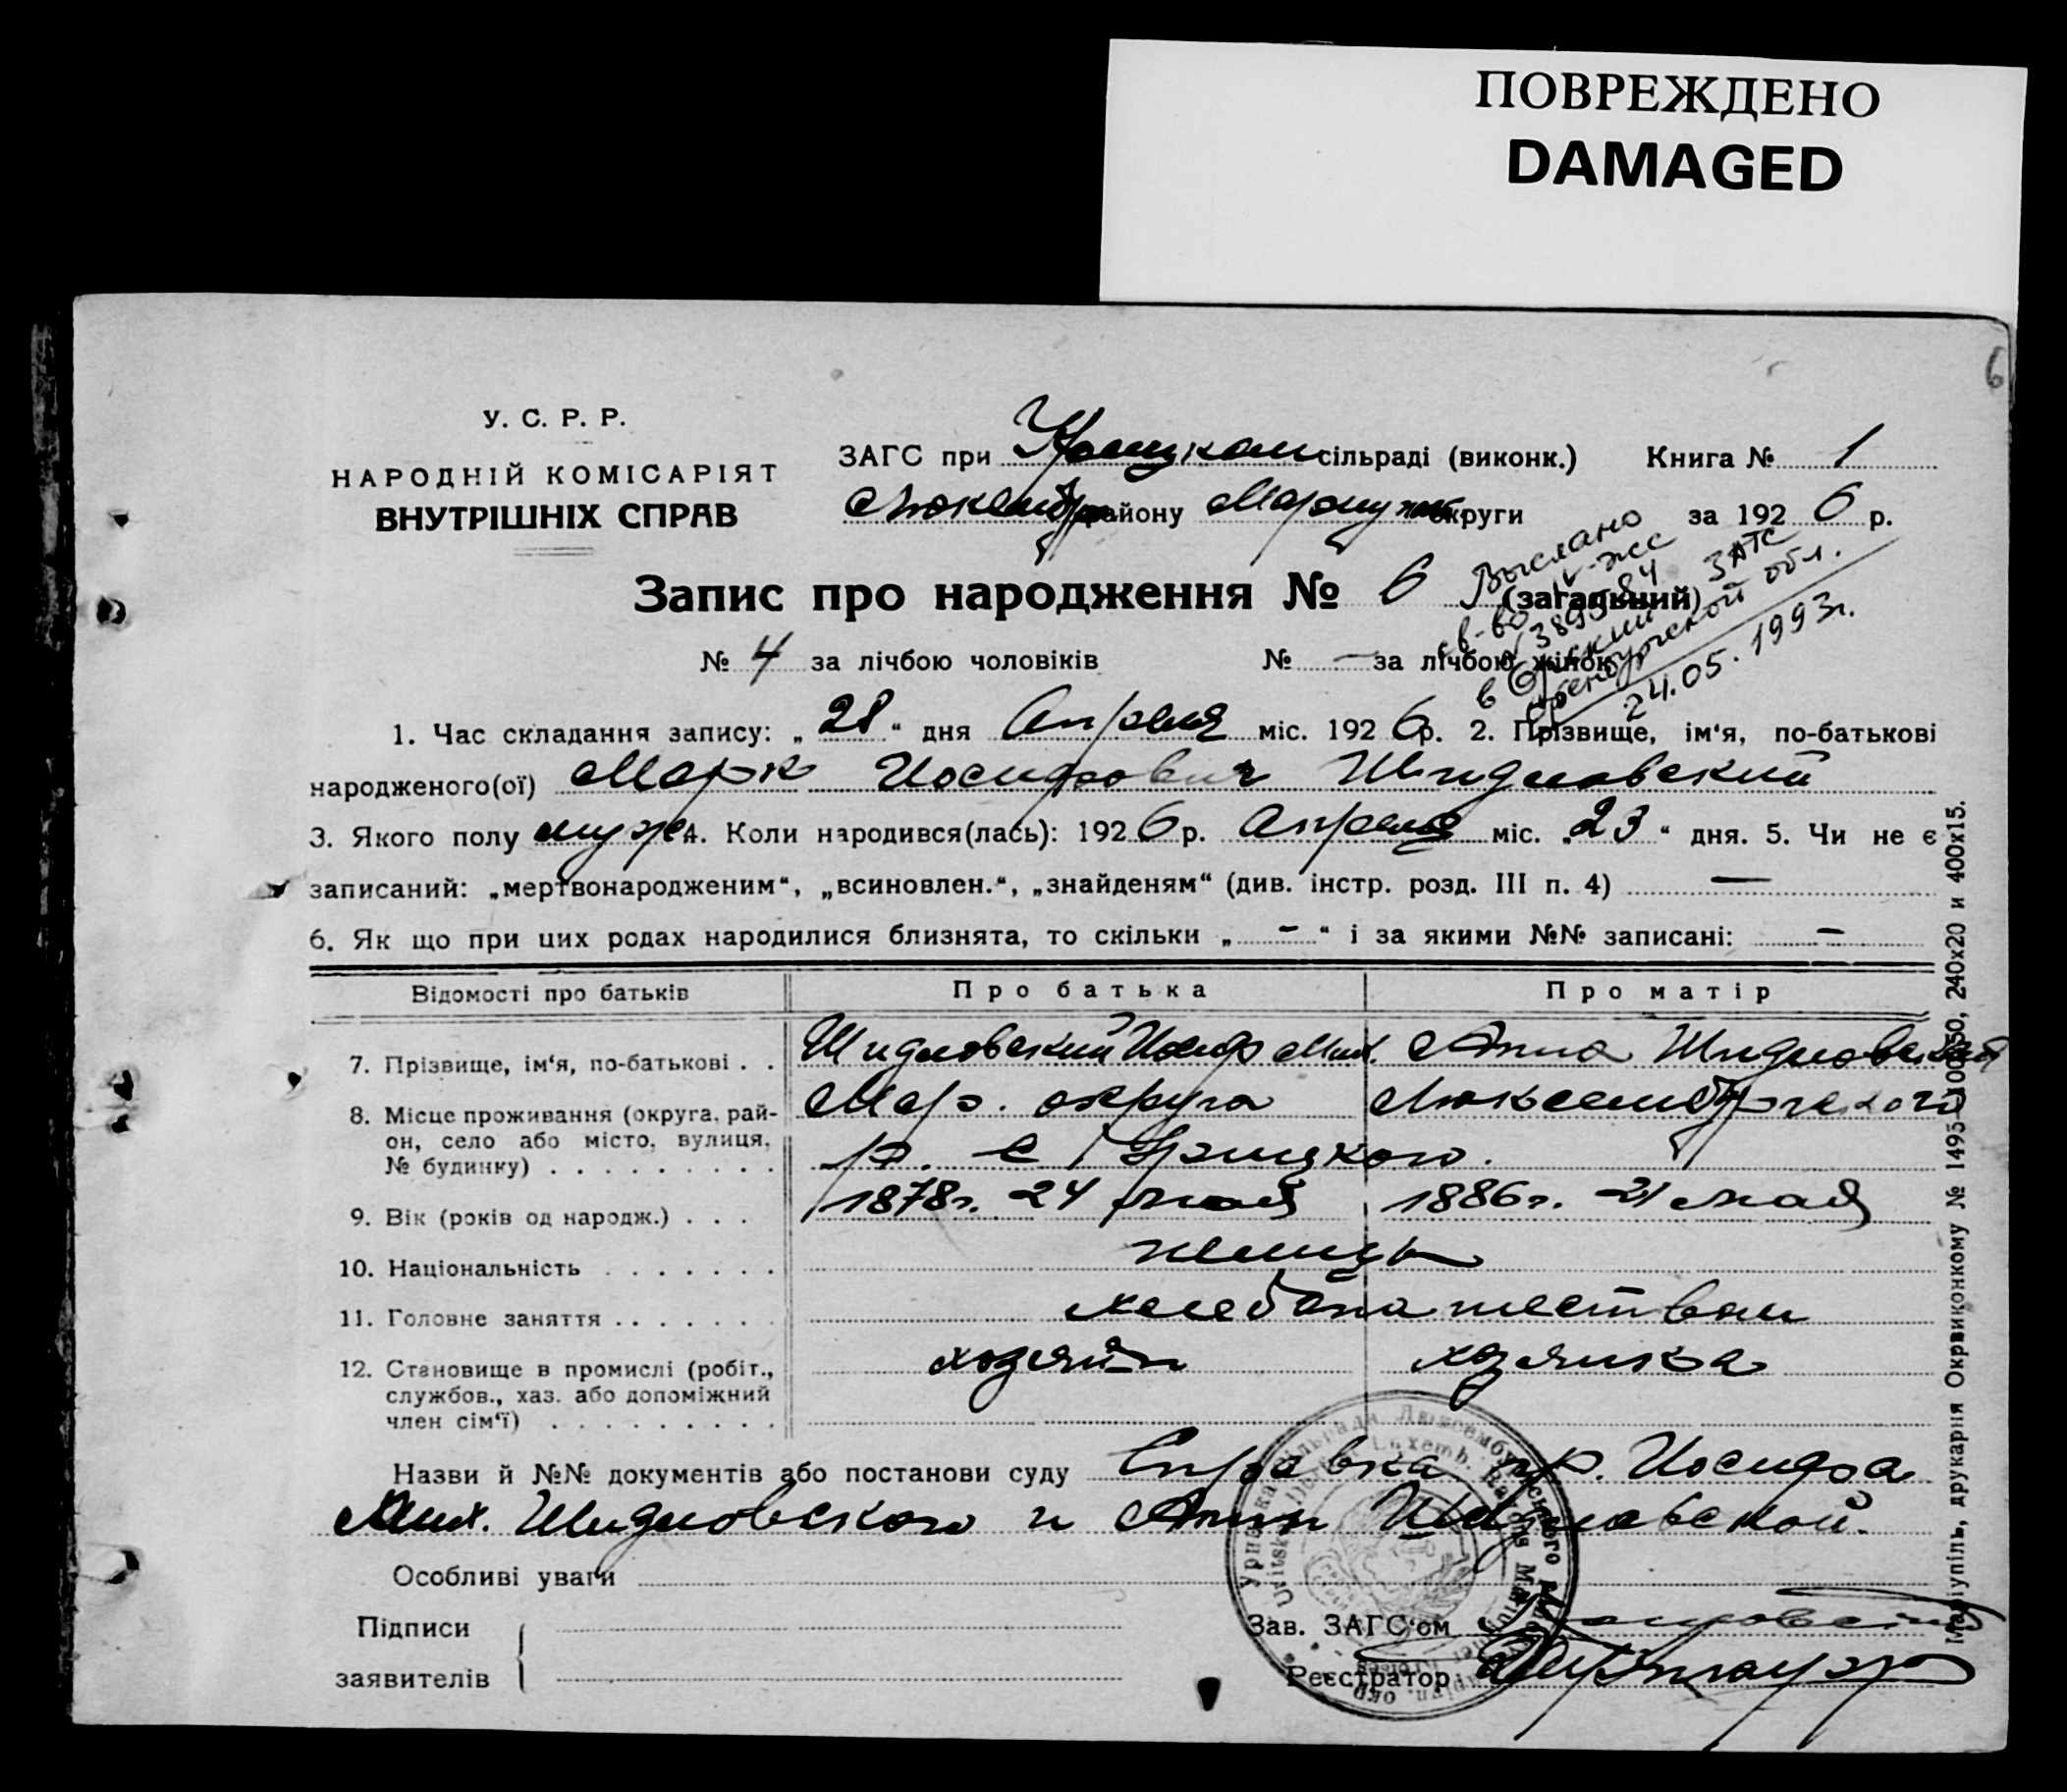 ПОВРЕЖДЕНО
DAMAGED
6
У. С. Р. Р.
НАРОДНІЙ КОМІСАРІЯТ
ВНУТРІШНІХ СПРАВ
ЗАГС при Урицком сільраді (виконк.) Книга № 1
Люксембр району Мариуп округи за 192 6 р.
Запис про народження № 6 (загальний)
№ 4 за лічбою чоловіків № — за лічбою жінок
Выслано
св-во IV-ЖС
389584
в Орский ЗАГС
Оренбургской обл.
24.05.1993г.
1. Час складання запису: „ 28 “ дня Апреля міс. 192 6 р. 2. Прізвище, ім‘я, по-батькові
народженого(ої) Марк Иосифович Шидловский
3. Якого полу муж 4. Коли народився(лась): 192 6 р. Апреля міс. „ 23 “ дня. 5. Чи не є
записаний: „мертвонародженим“, „всиновлен.“, „знайденям“ (див. інстр. розд. III п. 4) —
6. Як що при цих родах народилися близнята, то скільки „ - “ і за якими №№ записані: -
Відомості про батьків Про батька Про матір
7. Прізвище, ім‘я, по-батькові . . Шидловский Иосиф Мих. Анна Шидловская
8. Місце проживання (округа, рай- Мар. округа Люксембургского
он, село або місто, вулиця, р. с Урицкого.
№ будинку) . . . . . . . . .
9. Вік (років од народж.) . . . 1878г. 24 мая 1886г. 21 мая
10. Національність . . . . . . . немцы
11. Головне заняття . . . . . . . хлебопашеством
12. Становище в промислі (робіт., хозяин хозяйка
службов., хаз. або допоміжний
член сім‘ї) . . . . . . . . .
Назви й №№ документів або постанови суду Справка гр. Иосифа
Мих. Шидловского и Анны Шидловской.
Особливі уваги
Підписи
заявителів
Зав. ЗАГС‘ом
Реєстратор
Маріупіль, друкарня Окрвиконкому № 1495 240x20 и 400x15.